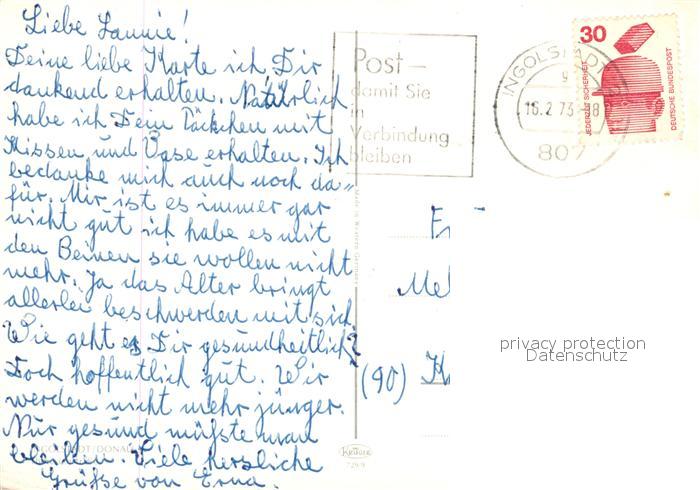 Liebe Lannie!
Deine liebe Karte ich Dir
dankend erhalten. Natürlich
habe ich Dein Päckchen mit
Kissen und Vase erhalten. Ich
bedanke mich auch noch da=
für. Mir ist es immer gar
nicht gut ich habe es mit
den Beinen sie wollen nicht
mehr. Ja das Alter bringt
allerlei beschwerden mit sich.
Wie geht es Dir gesundheitlich?
Doch hoffentlich gut. Wir
werden nicht mehr jünger.
Nur gesund müßte man
bleiben. Viele herzliche
Grüße von Erna.
Post –
damit Sie
in
Verbindung
bleiben
INGOLSTADT
g
16.2.73-18
807
30
JEDERZEIT SICHERHEIT
DEUTSCHE BUNDESPOST
(90)
privacy protection
Datenschutz
Krüger